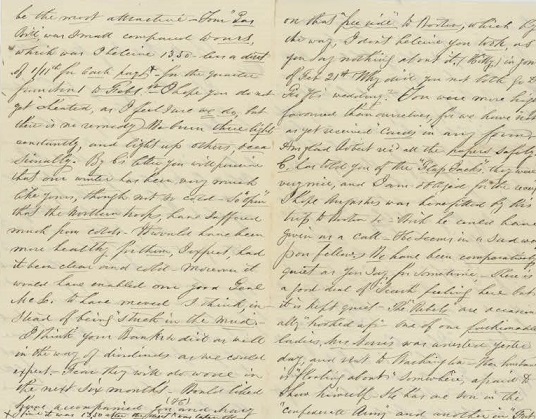 be the most attractive - Your Gas
Bill, was small compared to ours,
which was I believe 13.50 - less a disct
of for each - for the quarter
I hope you do not
get cheated, as I feel sure we do, but
there is no remedy. We burn three lights
constantly, and light up others, occa
sionally. By his letter you will perceive
that our winter has been very much
like yours, though not so cold - So "open"
that the Northern troops, have suffered
much from colds. It would have been
more healthy, for them, I expect, had
it been clear and cold - Moreover it
would have enabled our good Genl
McC. to have moved I think, in
stead of being stuck in the mud.
I think your Banks did as well
in the way of dividends as we could
expect. I fear they will do worse in
the next six months - Would liked
to have accompanied you and
on that "free ride" to Boston, which by
the way, I don't believe you took, as
you say nothing about it, (Kitty) in yours
of Jan 21st. Why did you not both go to
wedding? You were more highly
favoured than ourselves, for we have not
as yet received Cards in any form.
Am glad he rec'd all the papers safely.
C. has told you of the "Slap Jacks", they were
very nice, and I am obliged for the receipt
I hope Augustus was benefitted by his
trip to - Wish he could have
given us a call - He seems in a sad way
poor fellow. We have been comparatively
quiet as you say, for sometime. There is
a good deal of "Secesh" feeling here but
it is kept quiet - The Rebels are occasion
ally "hooked up" - one of our fashionable
ladies, Mrs was arrested yester
day, and sent to Washington - Her husband
is "floating about" somewhere, afraid to
show himself. She has one son in the
Confederate Army and another in